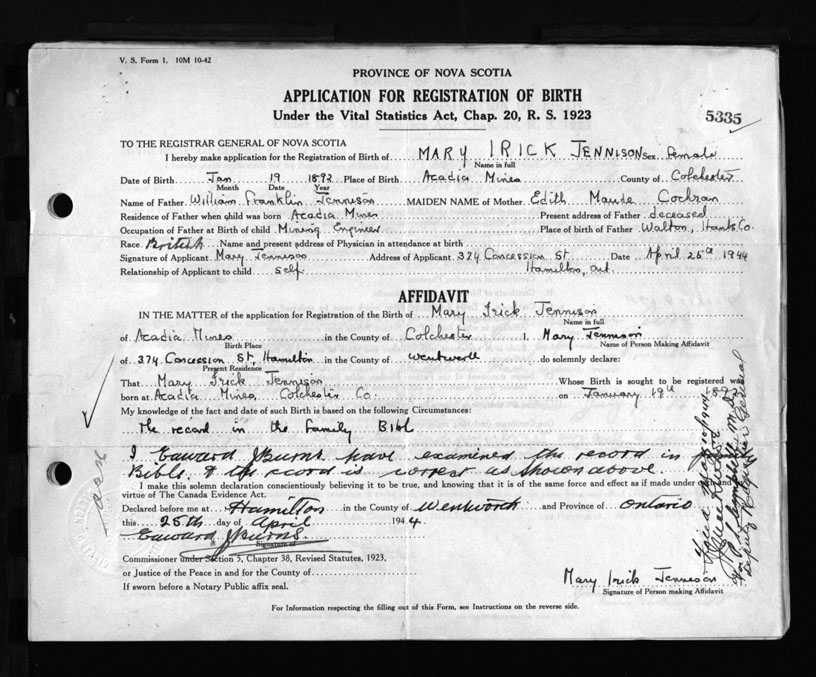 V. S. Form 1. 10M 10-42
PROVINCE OF NOVA SCOTIA
APPLICATION FOR REGISTRATION OF BIRTH
Under the Vital Statistics Act, Chap. 20, R. S. 1923
5335
TO THE REGISTRAR GENERAL OF NOVA SCOTIA
I hereby make application for the Registration of Birth of MARY IRICK JENNISON Sex female
Name in full
Date of Birth Jan 19 1892 Place of Birth Acadia Mines County of Colchester
Month Date Year
Name of Father William Franklin Jennison MAIDEN NAME of Mother Edith Maude Cochran
Residence of Father when child was born Acadia Mines Present address of Father deceased
Occupation of Father at Birth of child Mining Engineer Place of birth of Father Walton, Hants Co.
Race British Name and present address of Physician in attendance at birth
Signature of Applicant Mary Jennison Address of Applicant 374 Concession St Date April 25th 1944
Relationship of Applicant to child self Hamilton, Ont.
AFFIDAVIT
IN THE MATTER of the application for Registration of the Birth of Mary Irick Jennison
Name in full
of Acadia Mines in the County of Colchester I, Mary Jennison
Birth Place Name of Person Making Affidavit
of 374 Concession St, Hamilton in the County of Wentworth do solemnly declare:
Present Residence
That Mary Irick Jennison Whose Birth is sought to be registered was
born at Acadia Mines, Colchester Co. on January 19th 1892
My knowledge of the fact and date of such Birth is based on the following Circumstances:
The record in the family Bibl
I Edward J Burns have examined the record in
Bible & the record is correct as shown above.
I make this solemn declaration conscientiously believing it to be true, and knowing that it is of the same force and effect as if made under oath and
virtue of The Canada Evidence Act.
Declared before me at Hamilton in the County of Wentworth and Province of Ontario
this 25th day of April 1944
Edward J Burns
Signature of
Commissioner under Section 5, Chapter 38, Revised Statutes, 1923,
or Justice of the Peace in and for the County of
If sworn before a Notary Public affix seal.
Mary Irick Jennison
Signature of Person making Affidavit
For Information respecting the filling out of this Form, see Instructions on the reverse side.
Deputy Registrar General